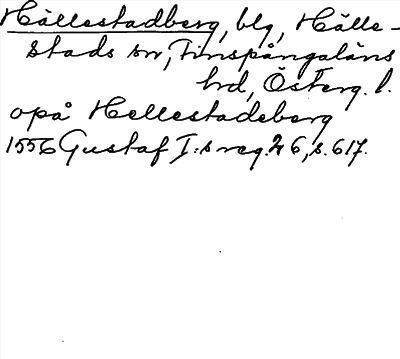 Hällestadberg, blg, Hälle-
stads sn, Finspångaläns
hd, Österg. l.
opå Hellestadeberg
1556 Gustaf I:s reg. 26, s. 617.